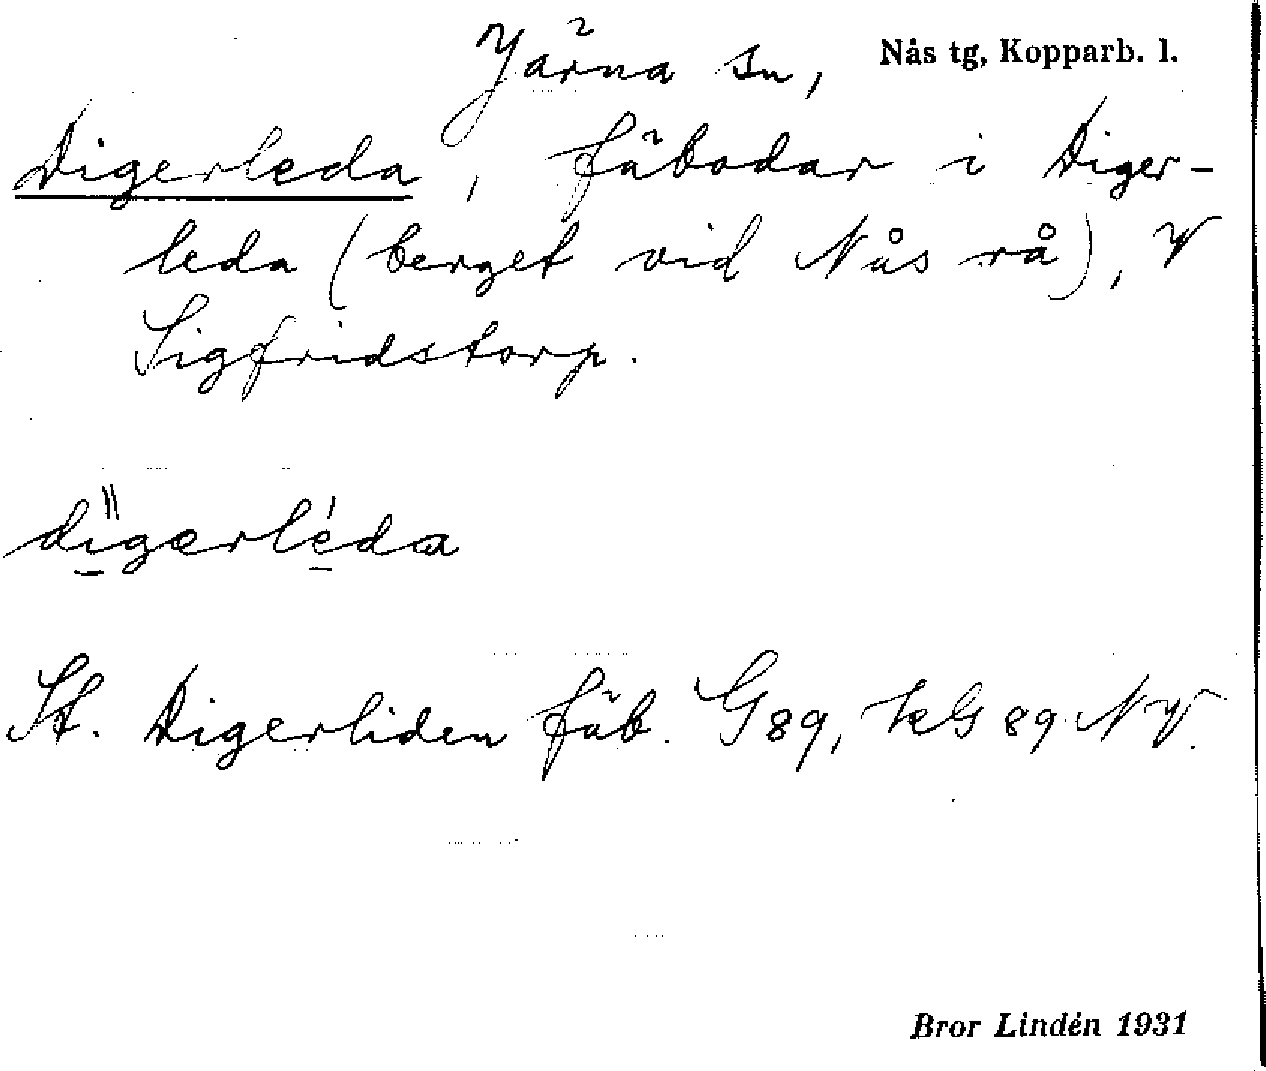 Järna sn, Nås tg, Kopparb. l.
Digerleda, fäbodar i Diger-
leda (berget vid Nås rå), V
Sigfridstorp.
dïgærléda
St. Digerliden fäb. G89, kG 89 NV.
Bror Lindén 1931